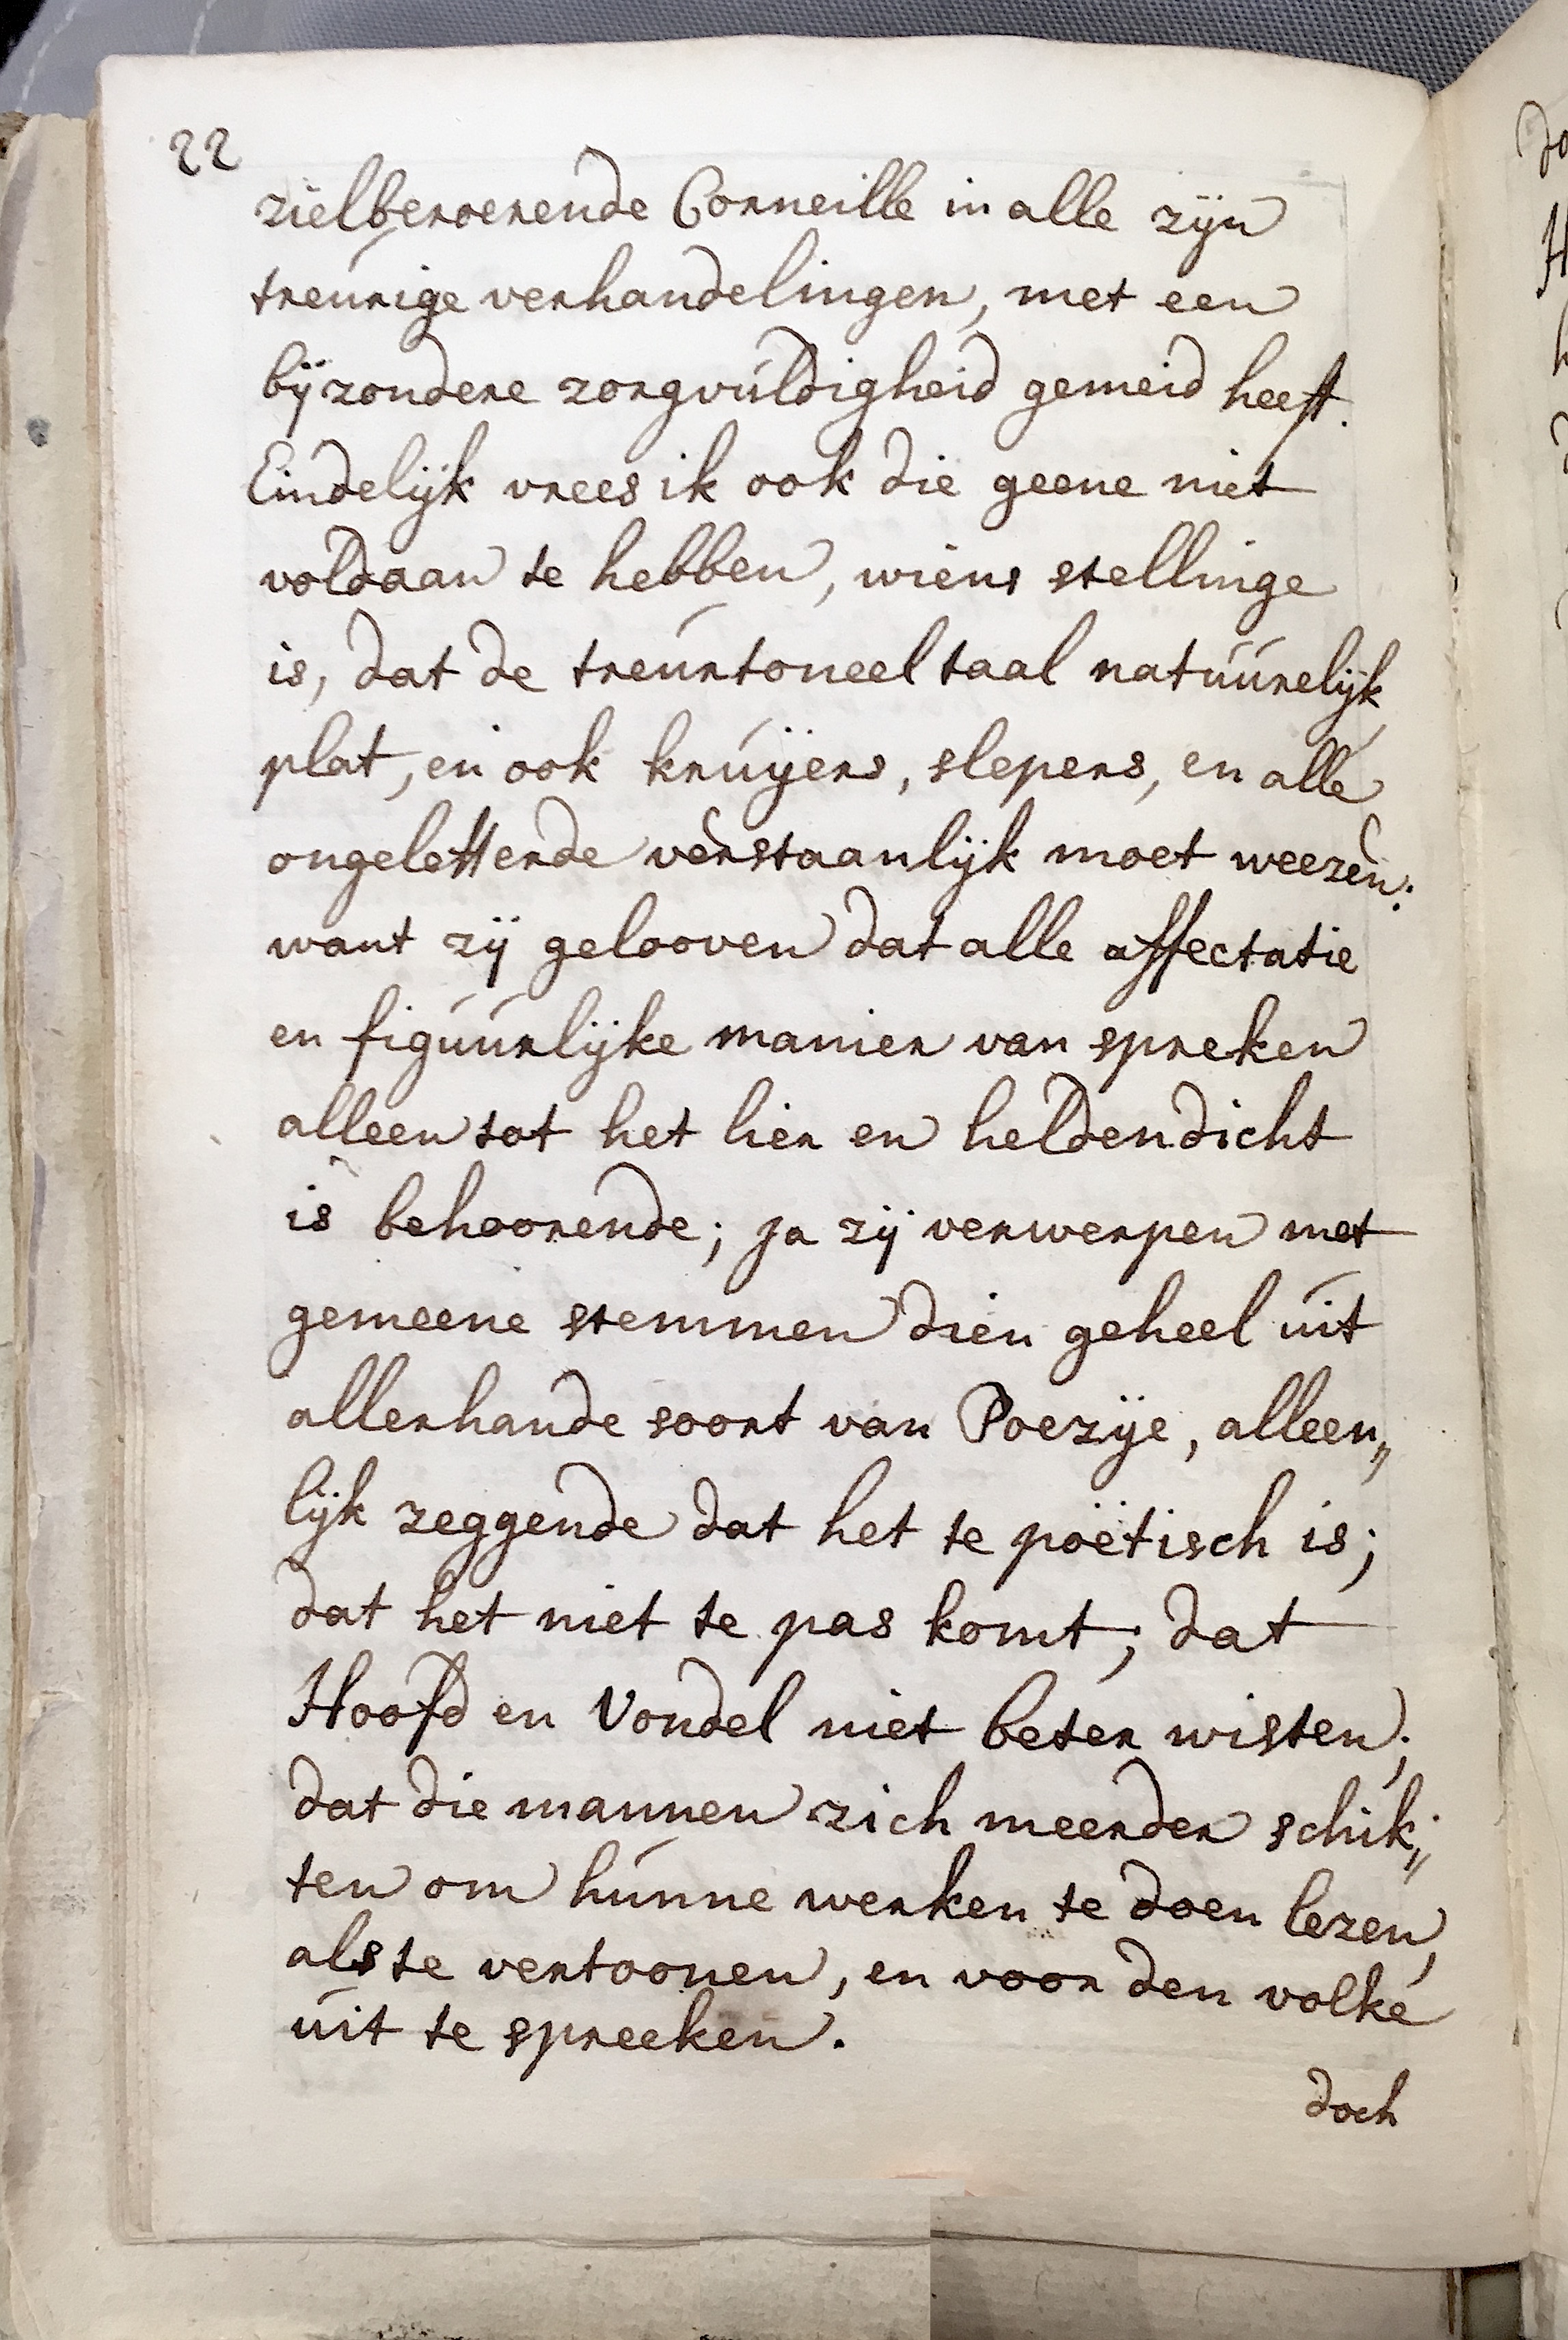 22
zielberoerende Corneille in alle zijn
treurige verhandelingen, met een
bijzondere zorgvuldigheid gemeid heeft.
Eindelijk vrees ik ook die geene niet
voldaan te hebben, wiens stellinge
is, dat de treurtoneel taal natuurelijk
plat, en ook kruijers, slepers, en alle
ongeletterde verstaanlijk moet weezen:
want zij gelooven dat alle affectatie
en figuurlijke manier van spreken
alleen tot het lier en heldendicht
is behoorende; ja zij verwerpen met
gemeene stemmen dien geheel uit
allerhande soort van Poezije, alleen„
lijk zeggende dat het te poëtisch is;
dat het niet te pas komt; dat
Hoofd en Vondel niet beter wisten;
dat die mannen zich meerder schik„
ten om hunne werken te doen lezen,
als te vertoonen, en voor den volke
uit te spreeken.
doch